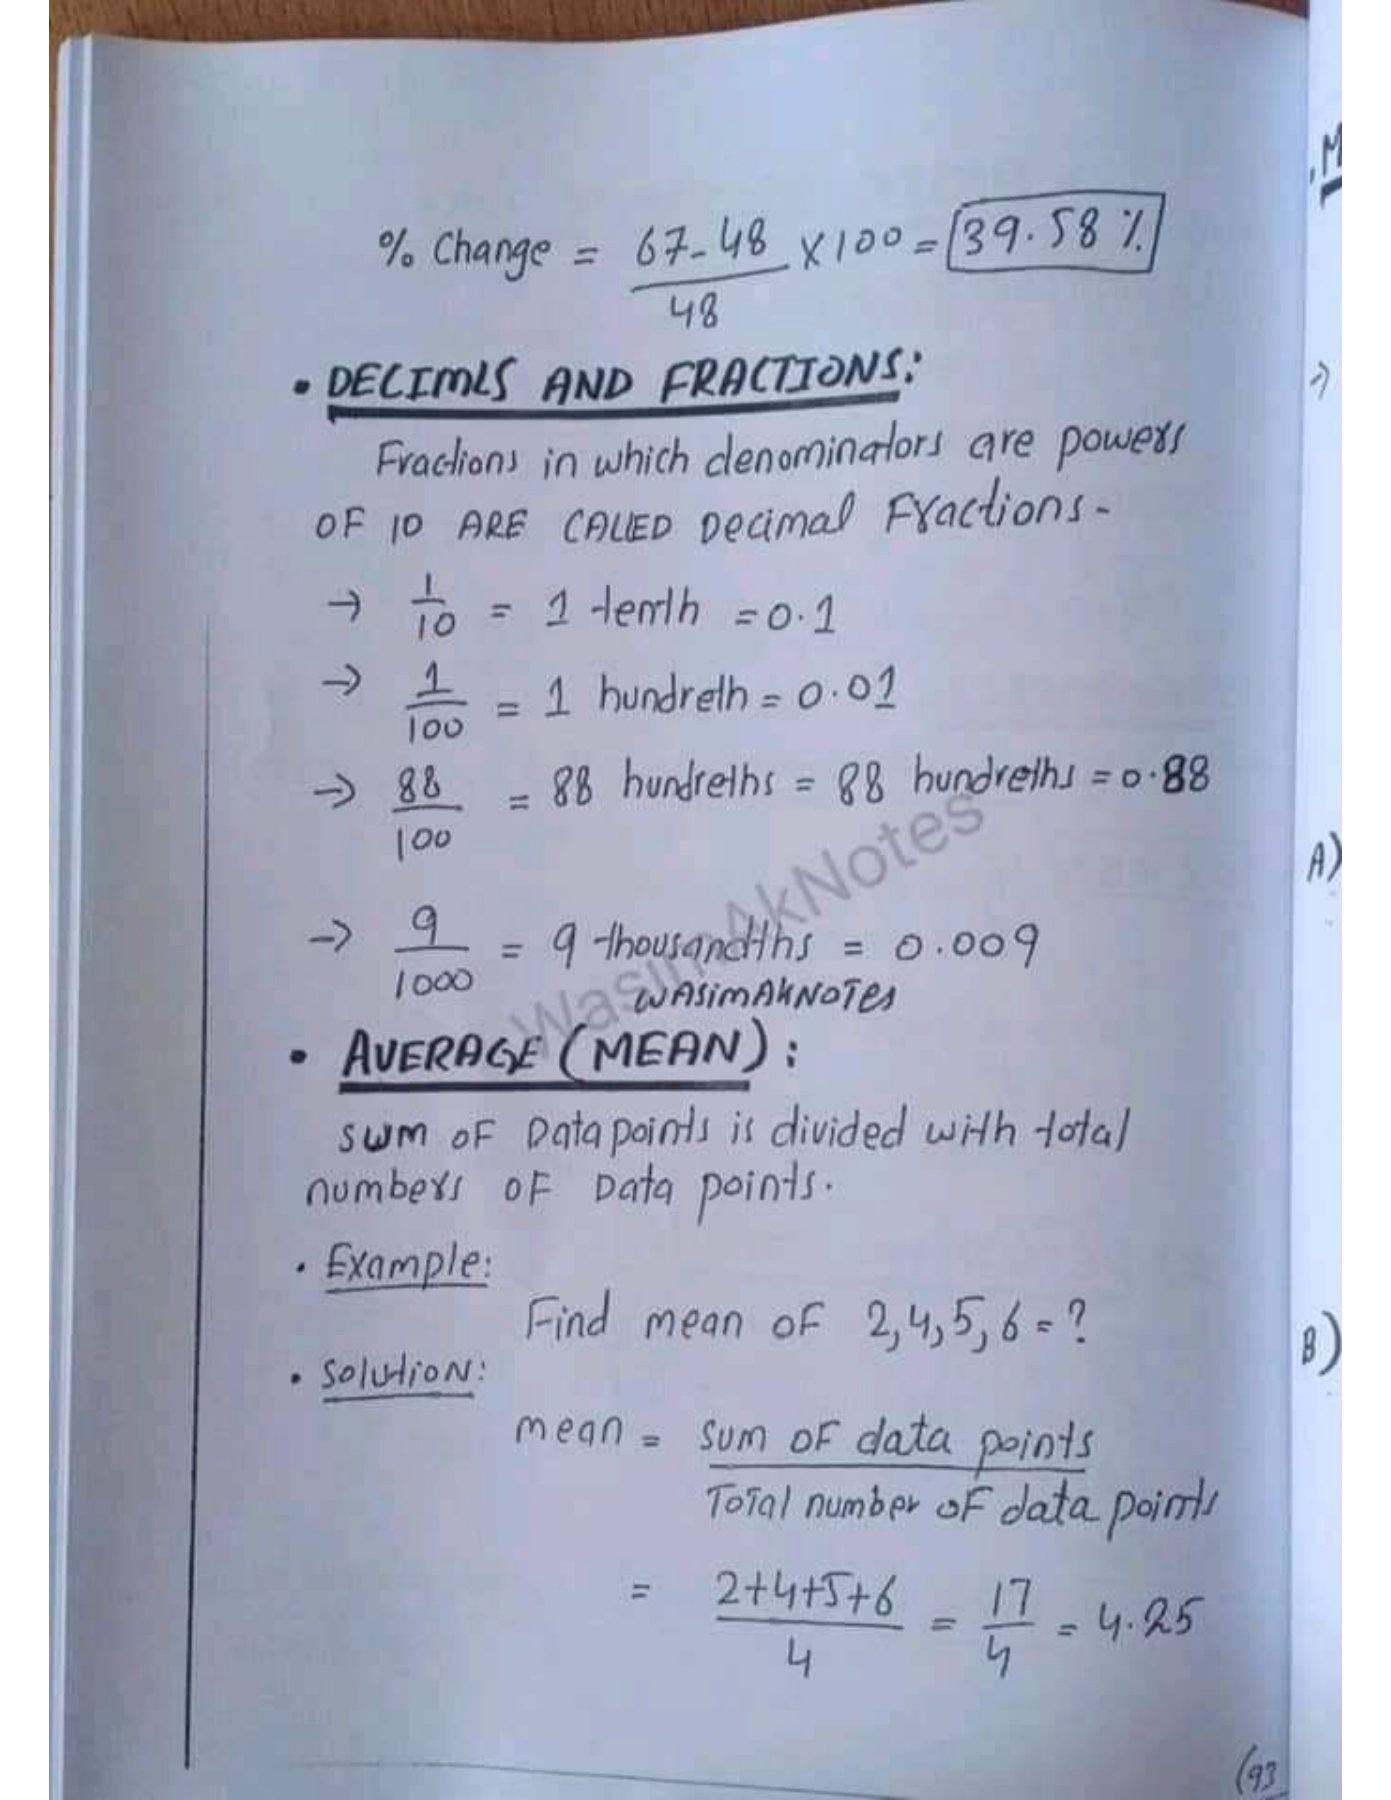 % Change = 67-48/48 X100 = 39.58 %
• DECIMLS AND FRACTIONS:
Fractions in which denominators are powers
OF 10 ARE CALLED Decimal Fractions-
→ 1/10 = 1 tenth = 0.1
→ 1/100 = 1 hundreth = 0.01
→ 88/100 = 88 hundreths = 88 hundreths = 0.88
→ 9/1000 = 9 thousandths = 0.009
WASimAkNOTES
WasimAkNotes
• AVERAGE (MEAN) :
sum oF Data points is divided with total
numbers OF Data points.
• Example:
Find mean oF 2,4,5,6 = ?
• Solution:
mean = sum OF data points
Total number oF data points
= 2+4+5+6/4 = 17/4 = 4.25
(93
.M
→
A)
B)